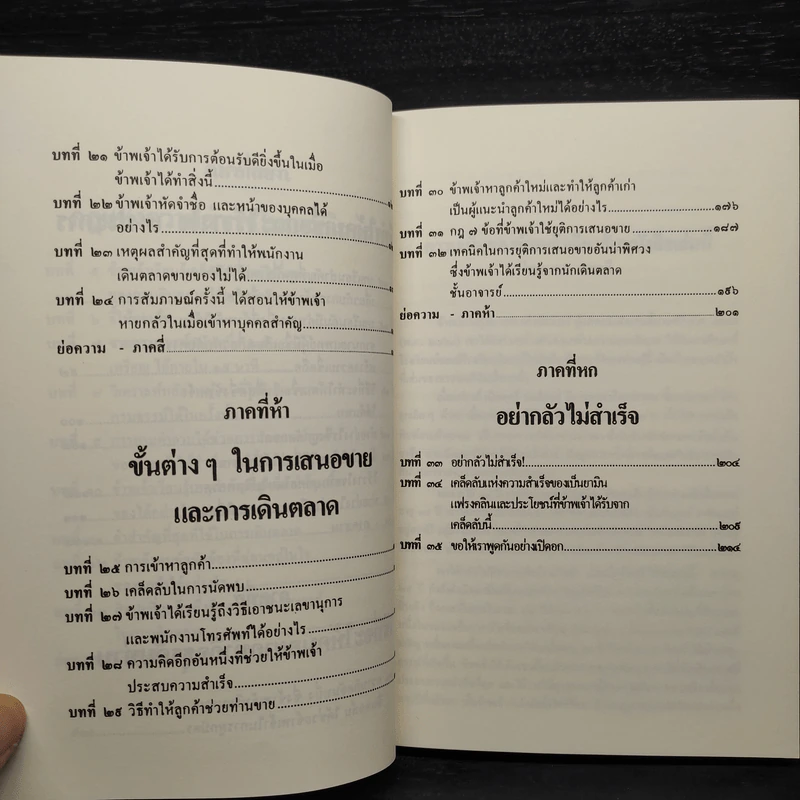 บทที่ ๒๑ ข้าพเจ้าได้รับการต้อนรับดียิ่งขึ้นในเมื่อ
ข้าพเจ้าได้ทำสิ่งนี้
บทที่ ๒๒ ข้าพเจ้าหัดจำชื่อ และหน้าของบุคคลได้
อย่างไร
บทที่ ๒๓ เหตุผลสำคัญที่สุดที่ทำให้พนักงาน
เดินตลาดขายของไม่ได้
บทที่ ๒๔ การสัมภาษณ์ครั้งนี้ ได้สอนให้ข้าพเจ้า
หายกลัวในเมื่อเข้าหาบุคคลสำคัญ
ย่อความ - ภาคสี่
ภาคที่ห้า
ขั้นต่าง ๆ ในการเสนอขาย
และการเดินตลาด
บทที่ ๒๕ การเข้าหาลูกค้า
บทที่ ๒๖ เคล็ดลับในการนัดพบ
บทที่ ๒๗ ข้าพเจ้าได้เรียนรู้ถึงวิธีเอาชนะเลขานุการ
และพนักงานโทรศัพท์ได้อย่างไร
บทที่ ๒๘ ความคิดอีกอันหนึ่งที่ช่วยให้ข้าพเจ้า
ประสบความสำเร็จ
บทที่ ๒๙ วิธีทำให้ลูกค้าช่วยท่านขาย
บทที่ ๓๐ ข้าพเจ้าหาลูกค้าใหม่และทำให้ลูกค้าเก่า
เป็นผู้แนะนำลูกค้าใหม่ได้อย่างไร ๑๗๖
บทที่ ๓๑ กฎ ๗ ข้อที่ข้าพเจ้าใช้ยุติการเสนอขาย ๑๘๗
บทที่ ๓๒ เทคนิคในการยุติการเสนอขายอันน่าพิศวง
ซึ่งข้าพเจ้าได้เรียนรู้จากนักเดินตลาด
ชั้นอาจารย์ ๑๙๖
ย่อความ - ภาคห้า ๒๐๑
ภาคที่หก
อย่ากลัวไม่สำเร็จ
บทที่ ๓๓ อย่ากลัวไม่สำเร็จ! ๒๐๔
บทที่ ๓๔ เคล็ดลับแห่งความสำเร็จของเบ็นยามิน
แฟรงคลินและประโยชน์ที่ข้าพเจ้าได้รับจาก
เคล็ดลับนี้ ๒๐๙
บทที่ ๓๕ ขอให้เราพูดกันอย่างเปิดอก ๒๑๔